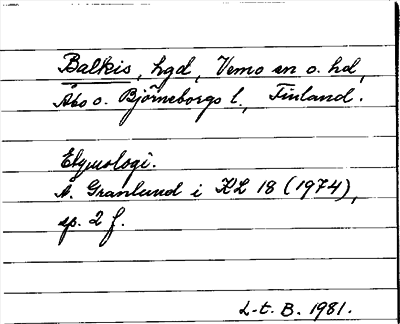 Balkis, hgd, Vemo sn o. hd,
Åbo o. Björneborgs l., Finland.
Etymologi.
Å. Granlund i KL 18 (1974),
sp. 2 f.
L-t. B. 1981.